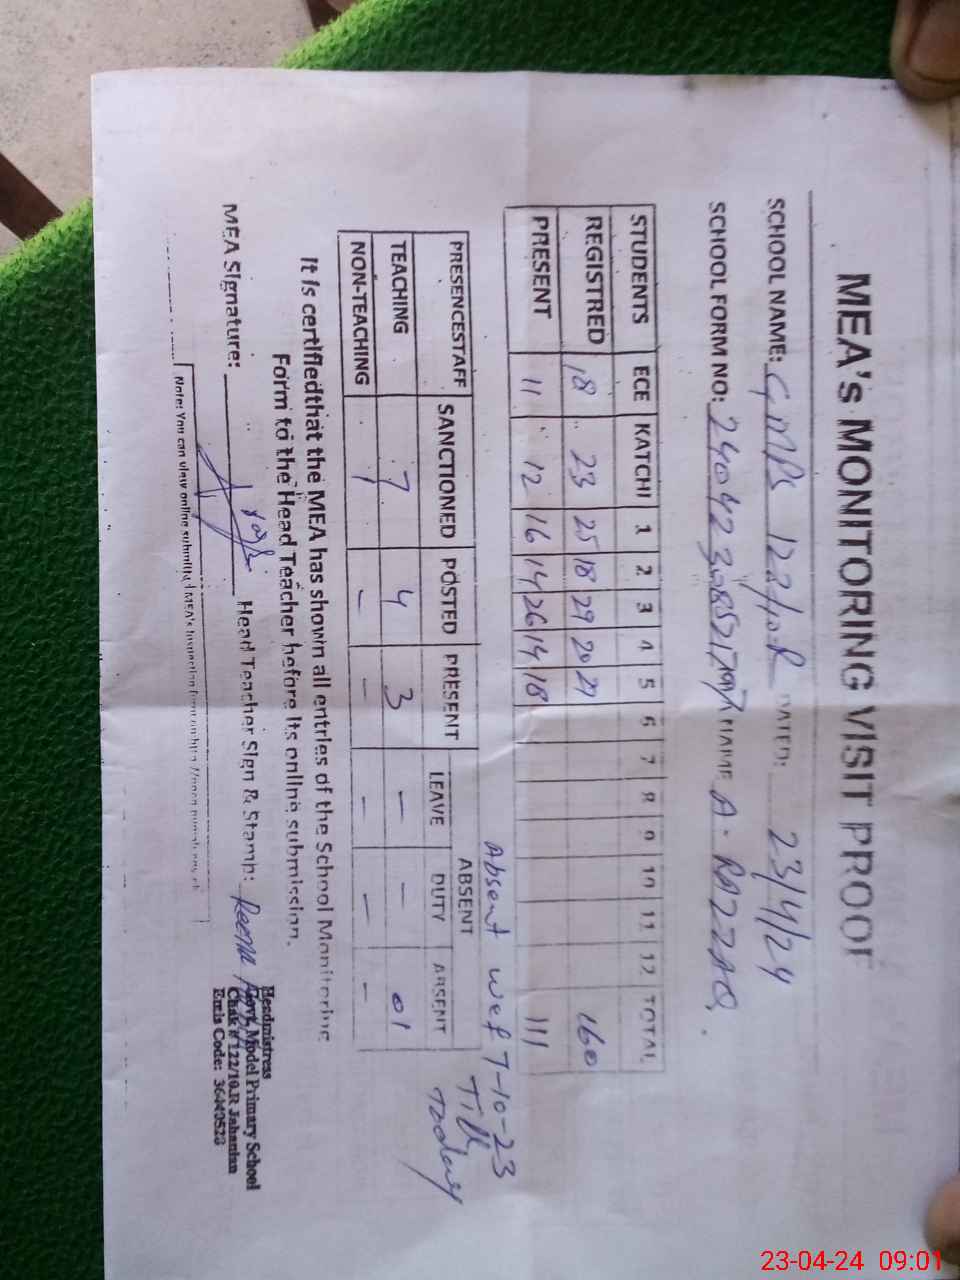 MEA's MONITORING VISIT PROOF
SCHOOL NAME: GMPS 122/10-R DATED: 23/4/24
SCHOOL FORM NO: NAME A. RAZZAQ.
STUDENTS ECE KATCHI 1 2 3 4 5 6 7 8 9 10 11 12 TOTAL
REGISTRED 18 23 25 18 29 20 27 160
PRESENT 11 12 16 14 26 14 18 111
Absent wef 7-10-23
Till
Today
PRESENCESTAFF SANCTIONED POSTED PRESENT ABSENT
LEAVE DUTY ABSENT
TEACHING 7 4 3 — — 01
NON-TEACHING 1 — — — — —
It is certifiedthat the MEA has shown all entries of the School Monitoring
Form to the Head Teacher before its online submission.
MEA Signature: Head Teacher Sign & Stamp:
Headmistress
Govt. Model Primary School
Chak # 122/10.R Jahanian
Emis Code:
Note: You can view online submitted MEA's Inspection form on
23-04-24 09:01